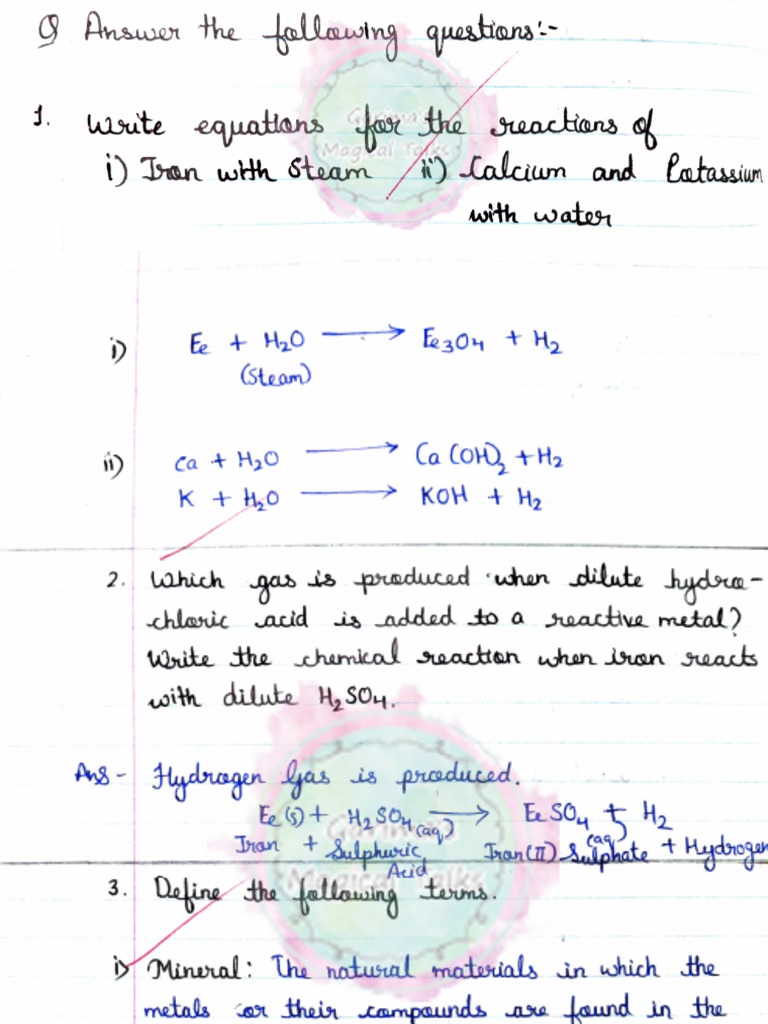 Q Answer the following questions:-
1. Write equations for the reactions of
i) Iron with Steam ii) Calcium and Potassium
with water
i) Fe + H2O ⟶ Fe3O4 + H2
(Steam)
ii) Ca + H2O ⟶ Ca(OH)2 + H2
K + H2O ⟶ KOH + H2
2. Which gas is produced when dilute hydro-
chloric acid is added to a reactive metal?
Write the chemical reaction when iron reacts
with dilute H2SO4.
Ans - Hydrogen Gas is produced.
Fe(s) + H2SO4(aq) ⟶ FeSO4(aq) + H2
Iron + Sulphuric Acid Iron(II) Sulphate + Hydrogen
3. Define the following terms.
i) Mineral: The natural materials in which the
metals or their compounds are found in the
Garima's
Magical Talks
Garima's
Magical Talks